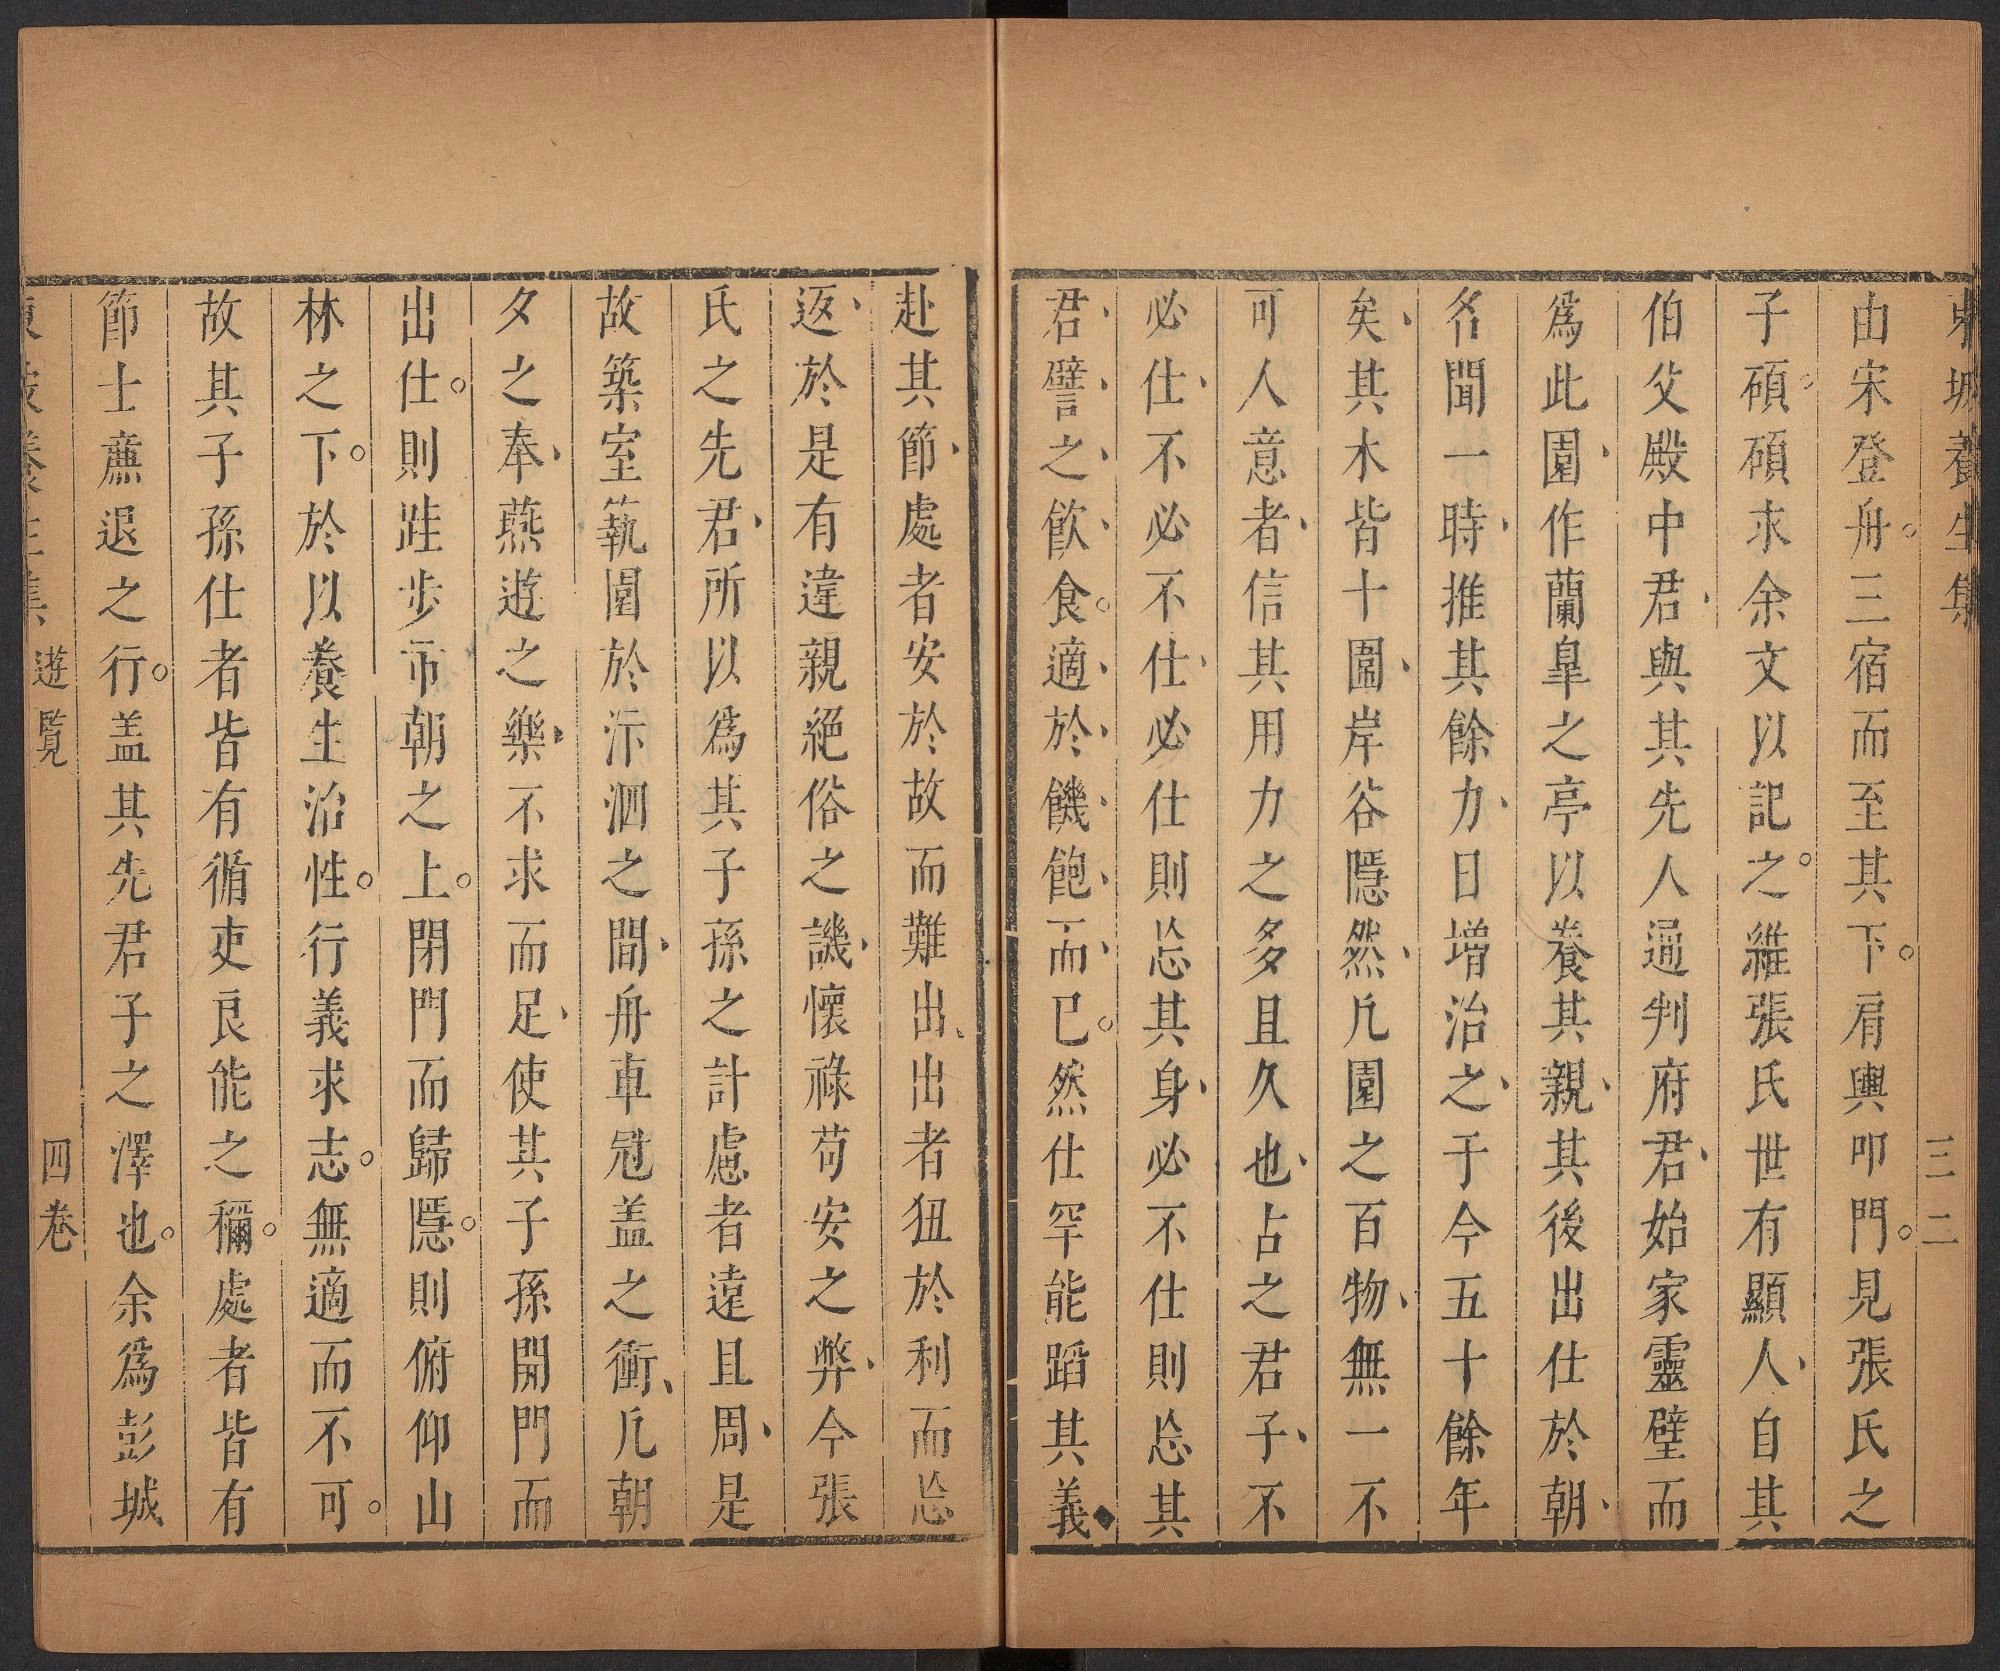 東坡養生集 三二
由宋登舟三宿而至其下肩輿叩門見張氏之
子碩碩求余文以記之維張氏世有顯人自其
伯父殿中君與其先人通判府君始家靈壁而
爲此園作蘭臯之亭以養其親其後出仕於朝
名聞一時推其餘力日增治之于今五十餘年
矣其木皆十圍岸谷隱然凡園之百物無一不
可人意者信其用力之多且久也古之君子不
必仕不必不仕必仕則忘其身必不仕則忘其
君譬之飲食適於饑飽而已然仕罕能蹈其義
赴其節處者安於故而難出出者狃於利而忘
返於是有違親絕俗之譏懷祿苟安之弊今張
氏之先君所以爲其子孫之計慮者遠且周是
故築室蓺園於汴泗之間舟車冠盖之衝凡朝
夕之奉燕遊之樂不求而足使其子孫開門而
出仕則跬步市朝之上閉門而歸隱則俯仰山
林之下於以養生治性行義求志無適而不可
故其子孫仕者皆有循吏良能之稱處者皆有
節士廉退之行盖其先君子之澤也余爲彭城
東坡養生集 遊覧 四卷